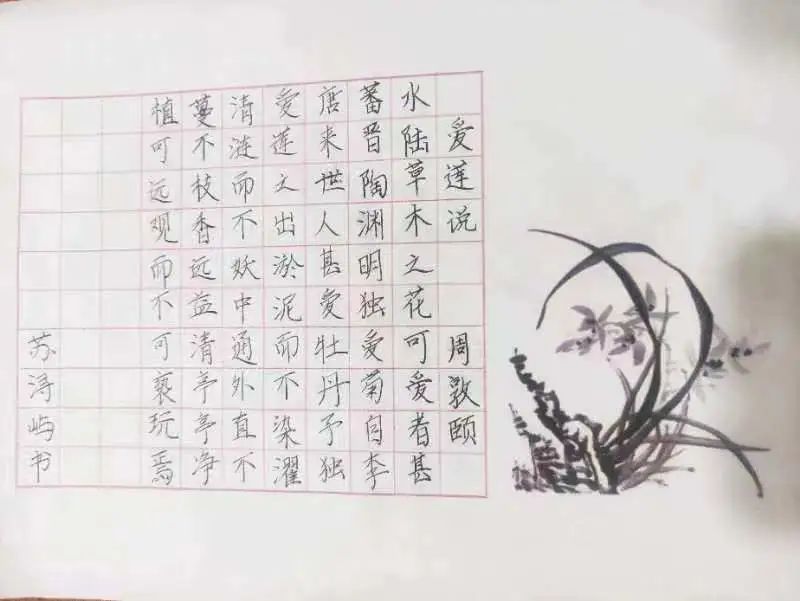 爱莲说 周敦颐
水陆草木之花可爱者甚
蕃晋陶渊明独爱菊自李
唐来世人甚爱牡丹予独
爱莲之出淤泥而不染濯
清涟而不妖中通外直不
蔓不枝香远益清亭亭净
植可远观而不可亵玩焉
苏浔屿书